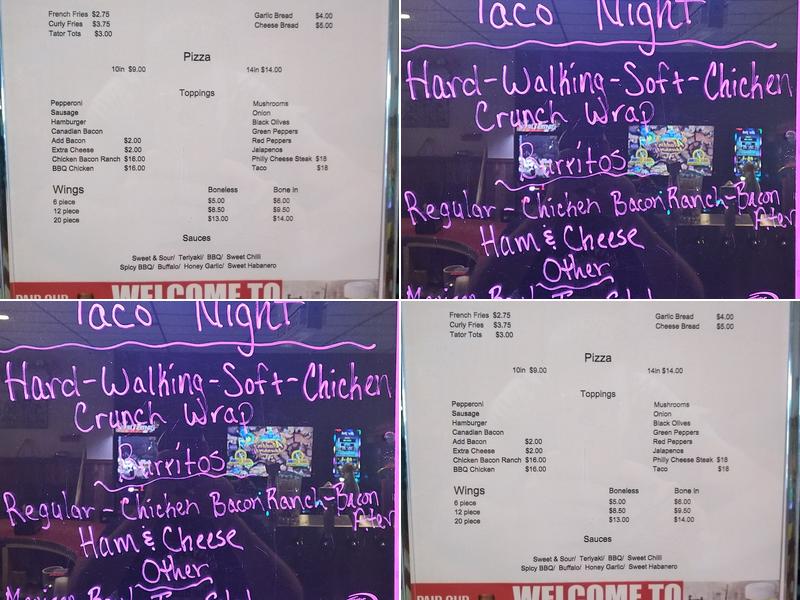 French Fries $2.75 Garlic Bread $4.00
Curly Fries $3.75 Cheese Bread $5.00
Tator Tots $3.00
Pizza
10in $9.00 14in $14.00
Toppings
Pepperoni Mushrooms
Sausage Onion
Hamburger Black Olives
Canadian Bacon Green Peppers
Add Bacon $2.00 Red Peppers
Extra Cheese $2.00 Jalapenos
Chicken Bacon Ranch $16.00 Philly Cheese Steak $18
BBQ Chicken $16.00 Taco $18
Wings Boneless Bone in
6 piece $5.00 $6.00
12 piece $8.50 $9.50
20 piece $13.00 $14.00
Sauces
Sweet & Sour/ Teriyaki/ BBQ/ Sweet Chilli
Spicy BBQ/ Buffalo/ Honey Garlic/ Sweet Habanero
WELCOME TO
Taco Night
Hard-Walking-Soft-Chicken
Crunch Wrap
Burritos
Regular - Chicken Bacon Ranch-Bacon
Ham & Cheese
Other
Taco Night
Hard-Walking-Soft-Chicken
Crunch Wrap
Burritos
Regular - Chicken Bacon Ranch-Bacon
Ham & Cheese
Other
French Fries $2.75 Garlic Bread $4.00
Curly Fries $3.75 Cheese Bread $5.00
Tator Tots $3.00
Pizza
10in $9.00 14in $14.00
Toppings
Pepperoni Mushrooms
Sausage Onion
Hamburger Black Olives
Canadian Bacon Green Peppers
Add Bacon $2.00 Red Peppers
Extra Cheese $2.00 Jalapenos
Chicken Bacon Ranch $16.00 Philly Cheese Steak $18
BBQ Chicken $16.00 Taco $18
Wings Boneless Bone in
6 piece $5.00 $6.00
12 piece $8.50 $9.50
20 piece $13.00 $14.00
Sauces
Sweet & Sour/ Teriyaki/ BBQ/ Sweet Chilli
Spicy BBQ/ Buffalo/ Honey Garlic/ Sweet Habanero
WELCOME TO